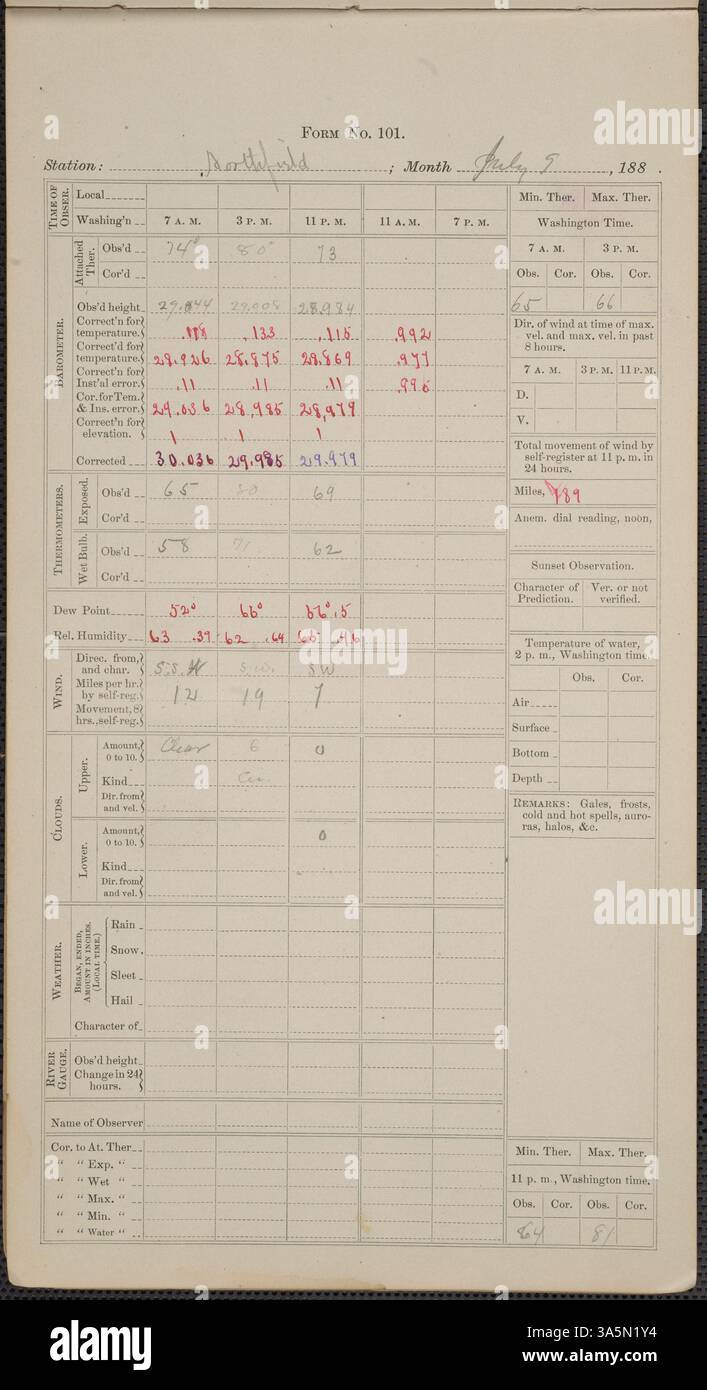 FORM No. 101.
Station: Northfield ; Month July 9 , 188 .
TIME OF OBSER.
Local
Washing'n 7 A. M. 3 P. M. 11 P. M. 11 A. M. 7 P. M.
BAROMETER.
Attached Ther.
Obs'd 74° 80° 73
Cor'd
Obs'd height 29.044 29.008 28.984
Correct'n for temperature. .118 .133 .115 .992
Correct'd for temperature. 28.926 28.875 28.869 .977
Correct'n for Inst'al error. .11 .11 .11
Cor. for Tem. & Ins. error. 29.036 28.985 28.979
Correct'n for elevation. 1 1 1
Corrected 30.036 29.985 29.979
THERMOMETERS.
Exposed.
Obs'd 65 80 69
Cor'd
Wet Bulb.
Obs'd 58 71 62
Cor'd
Dew Point 52° 66°
Rel. Humidity 63 .39 62
WIND.
Direc. from, and char. S.S.W S.W. S.W
Miles per hr. by self-reg. 12 19 7
Movement, 8 hrs., self-reg.
CLOUDS.
Upper.
Amount, 0 to 10. Clear 6 0
Kind
Dir. from and vel.
Lower.
Amount, 0 to 10. 0
Kind
Dir. from and vel.
WEATHER.
BEGAN, ENDED, AMOUNT IN INCHES. (LOCAL TIME.)
Rain
Snow.
Sleet
Hail
Character of
RIVER GAUGE.
Obs'd height
Change in 24 hours.
Name of Observer
Cor. to At. Ther
“ “ Exp. “
“ “ Wet “
“ “ Max. “
“ “ Min. “
“ “ Water “
Min. Ther. Max. Ther.
Washington Time.
7 A. M. 3 P. M.
Obs. Cor. Obs. Cor.
65 66
Dir. of wind at time of max. vel. and max. vel. in past 8 hours.
7 A. M. 3 P. M. 11 P. M.
D.
V.
Total movement of wind by self-register at 11 p. m. in 24 hours.
Miles, 189
Anem. dial reading, noon,
Sunset Observation.
Character of Prediction. Ver. or not verified.
Temperature of water, 2 p. m., Washington time.
Obs. Cor.
Air
Surface
Bottom
Depth
REMARKS: Gales, frosts, cold and hot spells, auroras, halos, &c.
Min. Ther. Max. Ther.
11 p. m., Washington time.
Obs. Cor. Obs. Cor.
64 81
alamy
alamy
a
alamy
Image ID: 3A5N1Y4
www.alamy.com